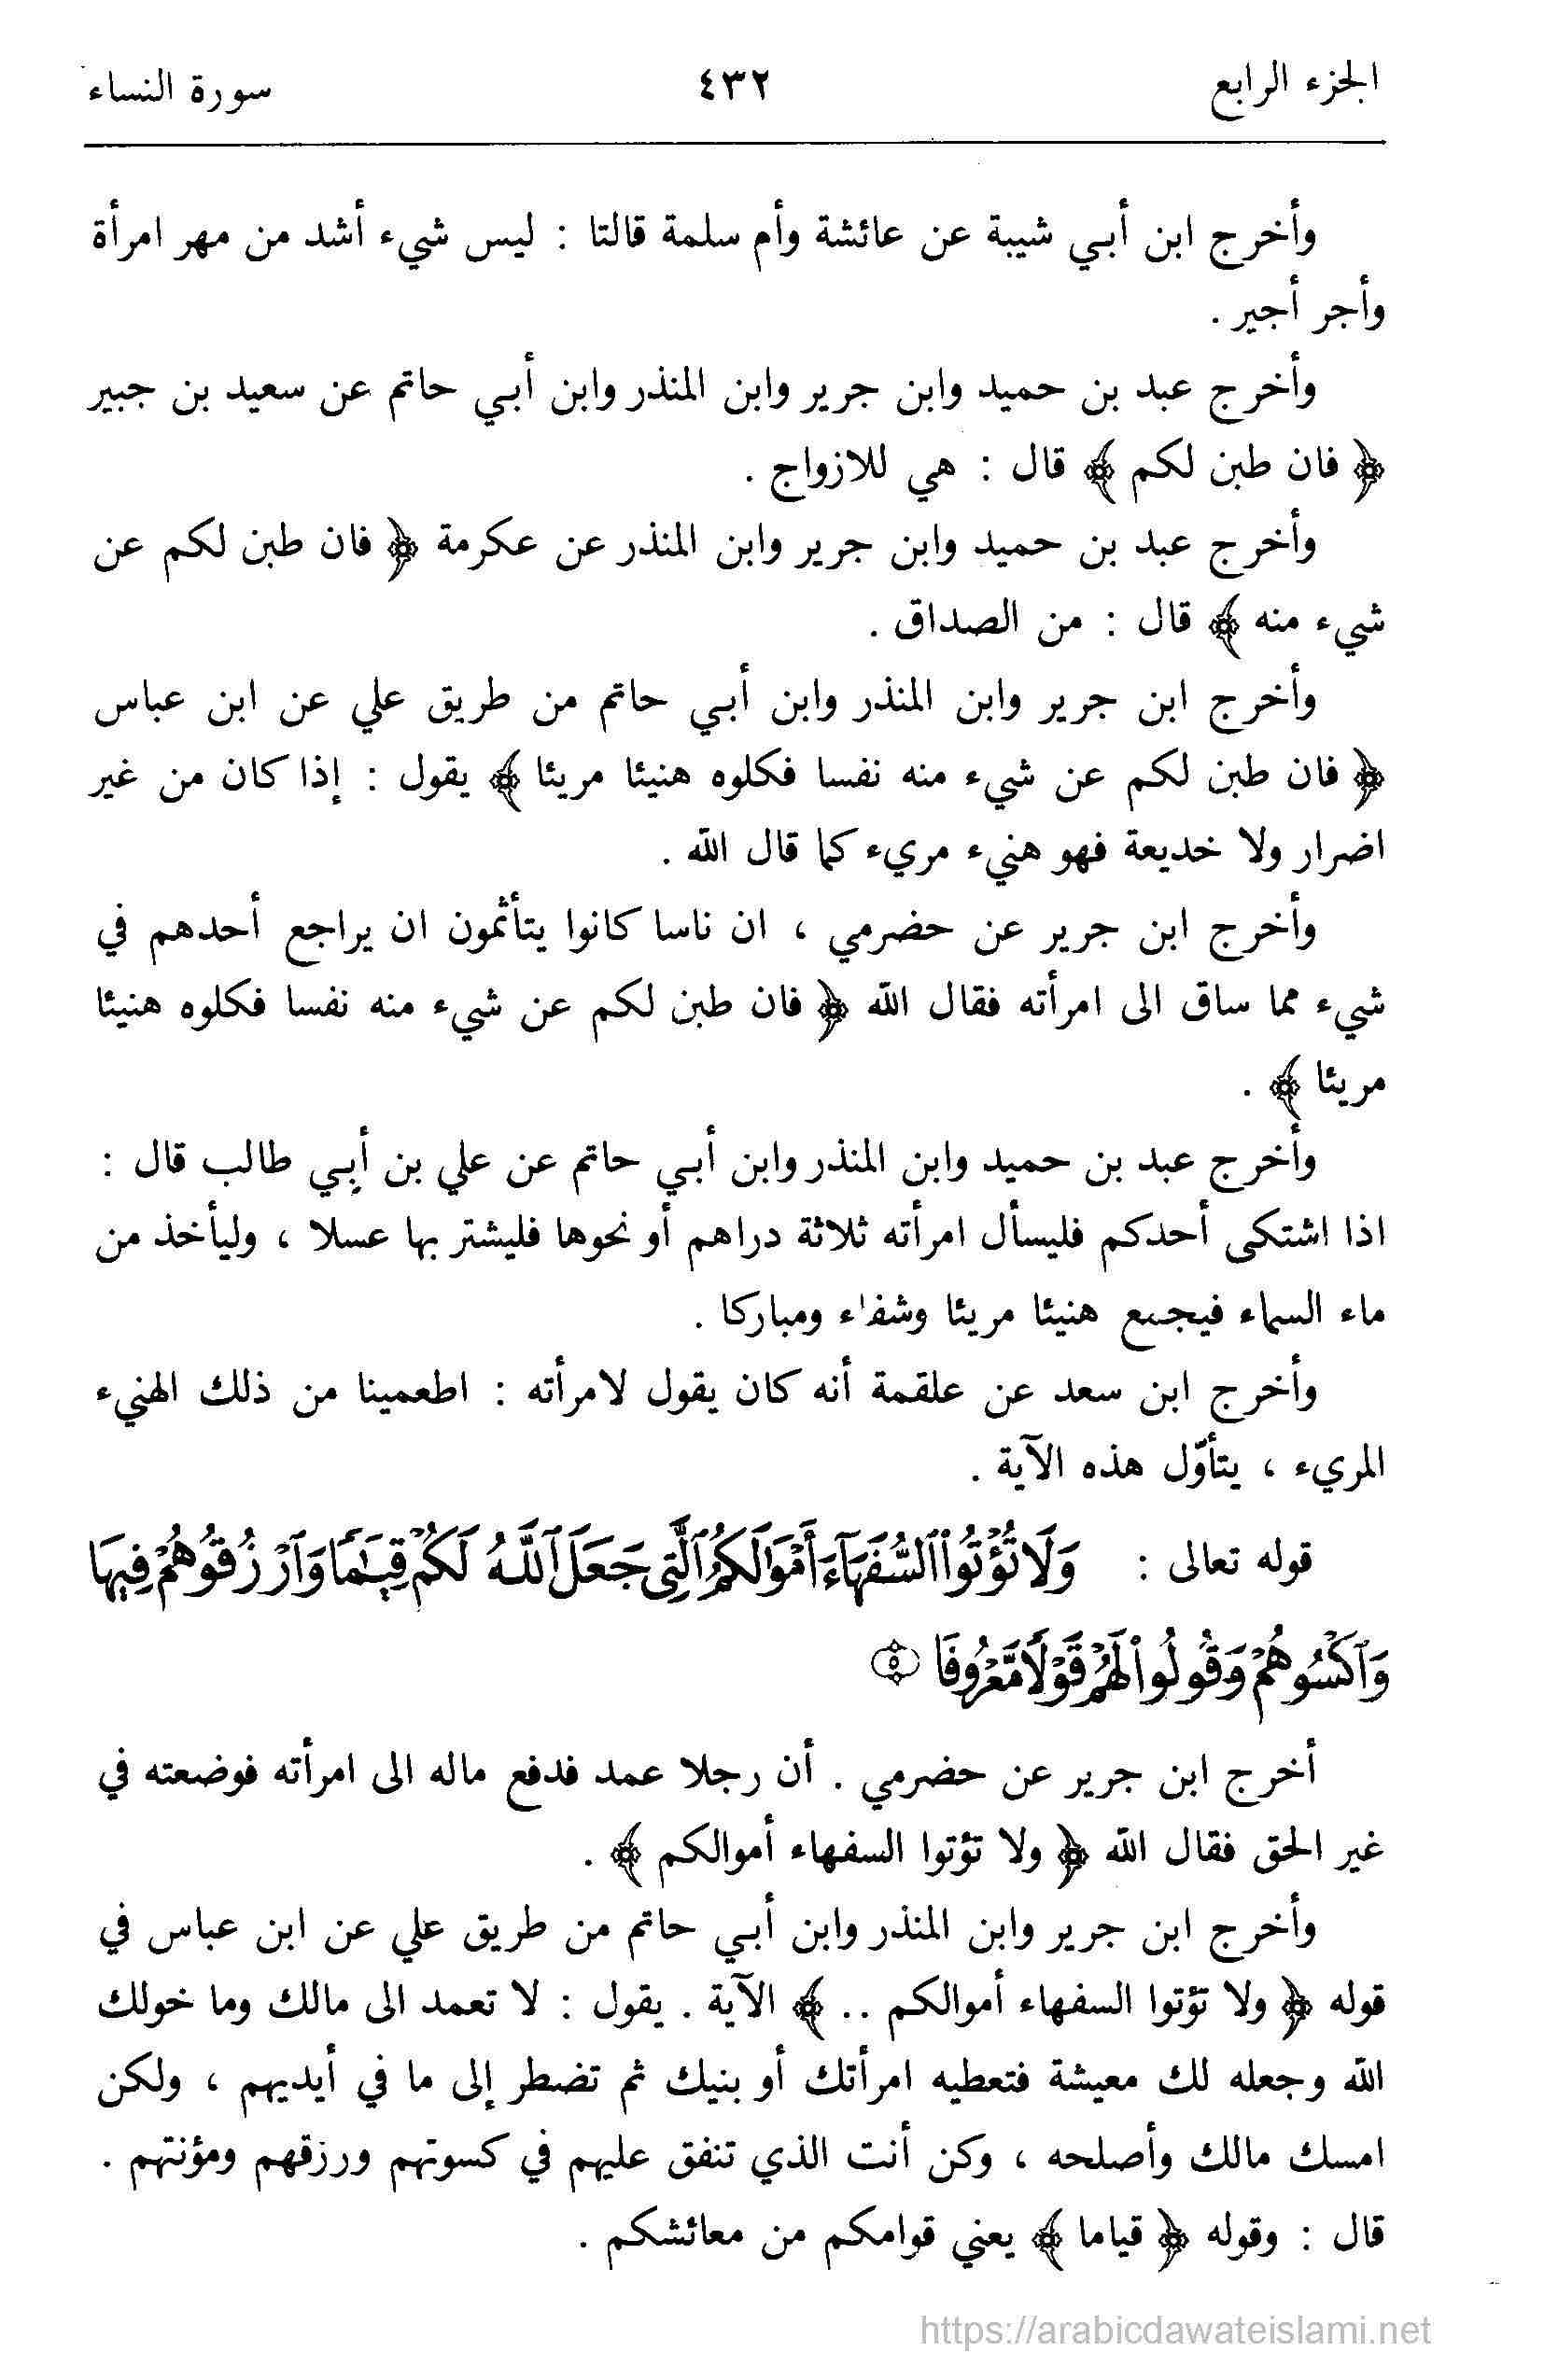 الجزء الرابع
٤٣٢
سورة النساء
وأخرج ابن أبي شيبة عن عائشة وأم سلمة قالتا : ليس شيء أشد من مهر امرأة
وأجر أجير .
وأخرج عبد بن حميد وابن جرير وابن المنذر وابن أبي حاتم عن سعيد بن جبير
﴿ فان طبن لكم ﴾ قال : هي للازواج .
وأخرج عبد بن حميد وابن جرير وابن المنذر عن عكرمة ﴿ فان طبن لكم عن
شيء منه ﴾ قال : من الصداق .
وأخرج ابن جرير وابن المنذر وابن أبي حاتم من طريق علي عن ابن عباس
﴿ فان طبن لكم عن شيء منه نفسا فكلوه هنيئا مريئا ﴾ يقول : إذا كان من غير
اضرار ولا خديعة فهو هنيء مريء كما قال الله .
وأخرج ابن جرير عن حضرمي ، ان ناسا كانوا يتأثمون ان يراجع أحدهم في
شيء مما ساق الى امرأته فقال الله ﴿ فان طبن لكم عن شيء منه نفسا فكلوه هنيئا
مريئا ﴾ .
وأخرج عبد بن حميد وابن المنذر وابن أبي حاتم عن علي بن أبي طالب قال :
اذا اشتكى أحدكم فليسأل امرأته ثلاثة دراهم أو نحوها فليشتر بها عسلا ، وليأخذ من
ماء السماء فيجمع هنيئا مريئا وشفاء ومباركا .
وأخرج ابن سعد عن علقمة أنه كان يقول لامرأته : اطعمينا من ذلك الهنيء
المريء ، يتأوّل هذه الآية .
قوله تعالى : وَلَا تُؤْتُوا۟ ٱلسُّفَهَآءَ أَمْوَٰلَكُمُ ٱلَّتِى جَعَلَ ٱللَّهُ لَكُمْ قِيَـٰمًا وَٱرْزُقُوهُمْ فِيهَا
وَٱكْسُوهُمْ وَقُولُوا۟ لَهُمْ قَوْلًا مَّعْرُوفًا ۝٥
أخرج ابن جرير عن حضرمي . أن رجلا عمد فدفع ماله الى امرأته فوضعته في
غير الحق فقال الله ﴿ ولا تؤتوا السفهاء أموالكم ﴾ .
وأخرج ابن جرير وابن المنذر وابن أبي حاتم من طريق علي عن ابن عباس في
قوله ﴿ ولا تؤتوا السفهاء أموالكم .. ﴾ الآية . يقول : لا تعمد الى مالك وما خولك
الله وجعله لك معيشة فتعطيه امرأتك أو بنيك ثم تضطر إلى ما في أيديهم ، ولكن
امسك مالك وأصلحه ، وكن أنت الذي تنفق عليهم في كسوتهم ورزقهم ومؤنتهم .
قال : وقوله ﴿ قياما ﴾ يعني قوامكم من معائشكم .
https://arabicdawateislami.net